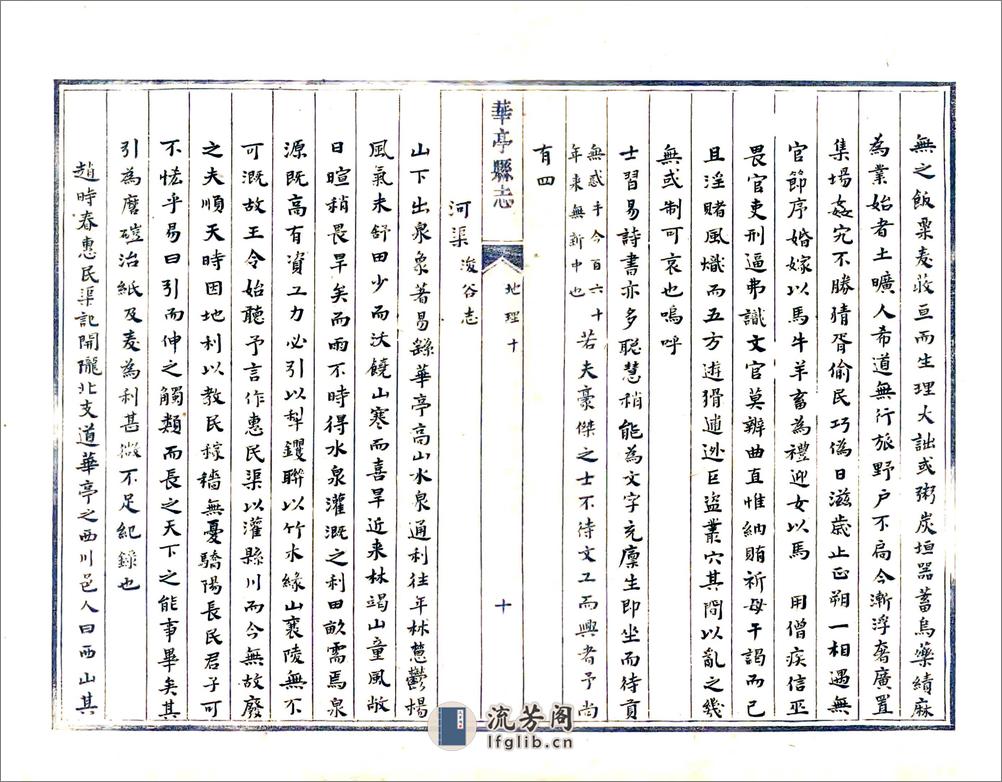 無之飯粟麦荍亘而生理大詘或粥炭垣器蓄烏藥績麻
為業始者土曠人希道無行旅野户不扃今漸浮奢廣置
集場姦宄不勝猜胥偷民巧偽日滋歲止正朔一相遇無
官節序婚嫁以馬牛羊畜為禮迎女以馬 用僧疾信巫
畏官吏刑逼弗識文官莫辨曲直惟納賄祈毋干謁而已
且淫賭風熾而五方逰猾逋逃巨盜叢穴其間以亂之幾
無或制可哀也嗚呼
士習易詩書亦多聰慧稍能為文字充廩生即坐而待貢
無惑乎今百六十
年来無新中也
若夫豪傑之士不待文工而興者予尚
有四
華亭縣志
地理十
十
河渠
浚谷志
山下出泉象著易繇華亭高山水泉通利往年林蒽鬱楊
風氣未舒田少而沃饒山寒而喜旱近来林竭山童風敞
日暄稍畏旱矣而雨不時得水泉灌溉之利田畝需焉泉
源既高有資工力必引以犁钁聯以竹水緣山襄陵無不
可溉故王令始聽予言作惠民渠以灌縣川而今無故廢
之夫順天時因地利以教民稼穡無憂驕陽長民君子可
不恡乎易曰引而伸之觸類而長之天下之能事畢矣其
引為磨磑治紙及麦為利甚微不足紀錄也
趙時春惠民渠記開隴北支道華亭之西川邑人曰西山其
流芳阁
lfglib.cn